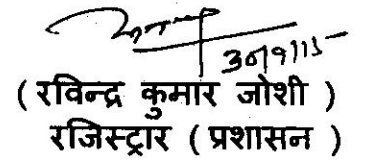 30/9/15
( रविन्द्र कुमार जोशी )
रजिस्ट्रार ( प्रशासन )